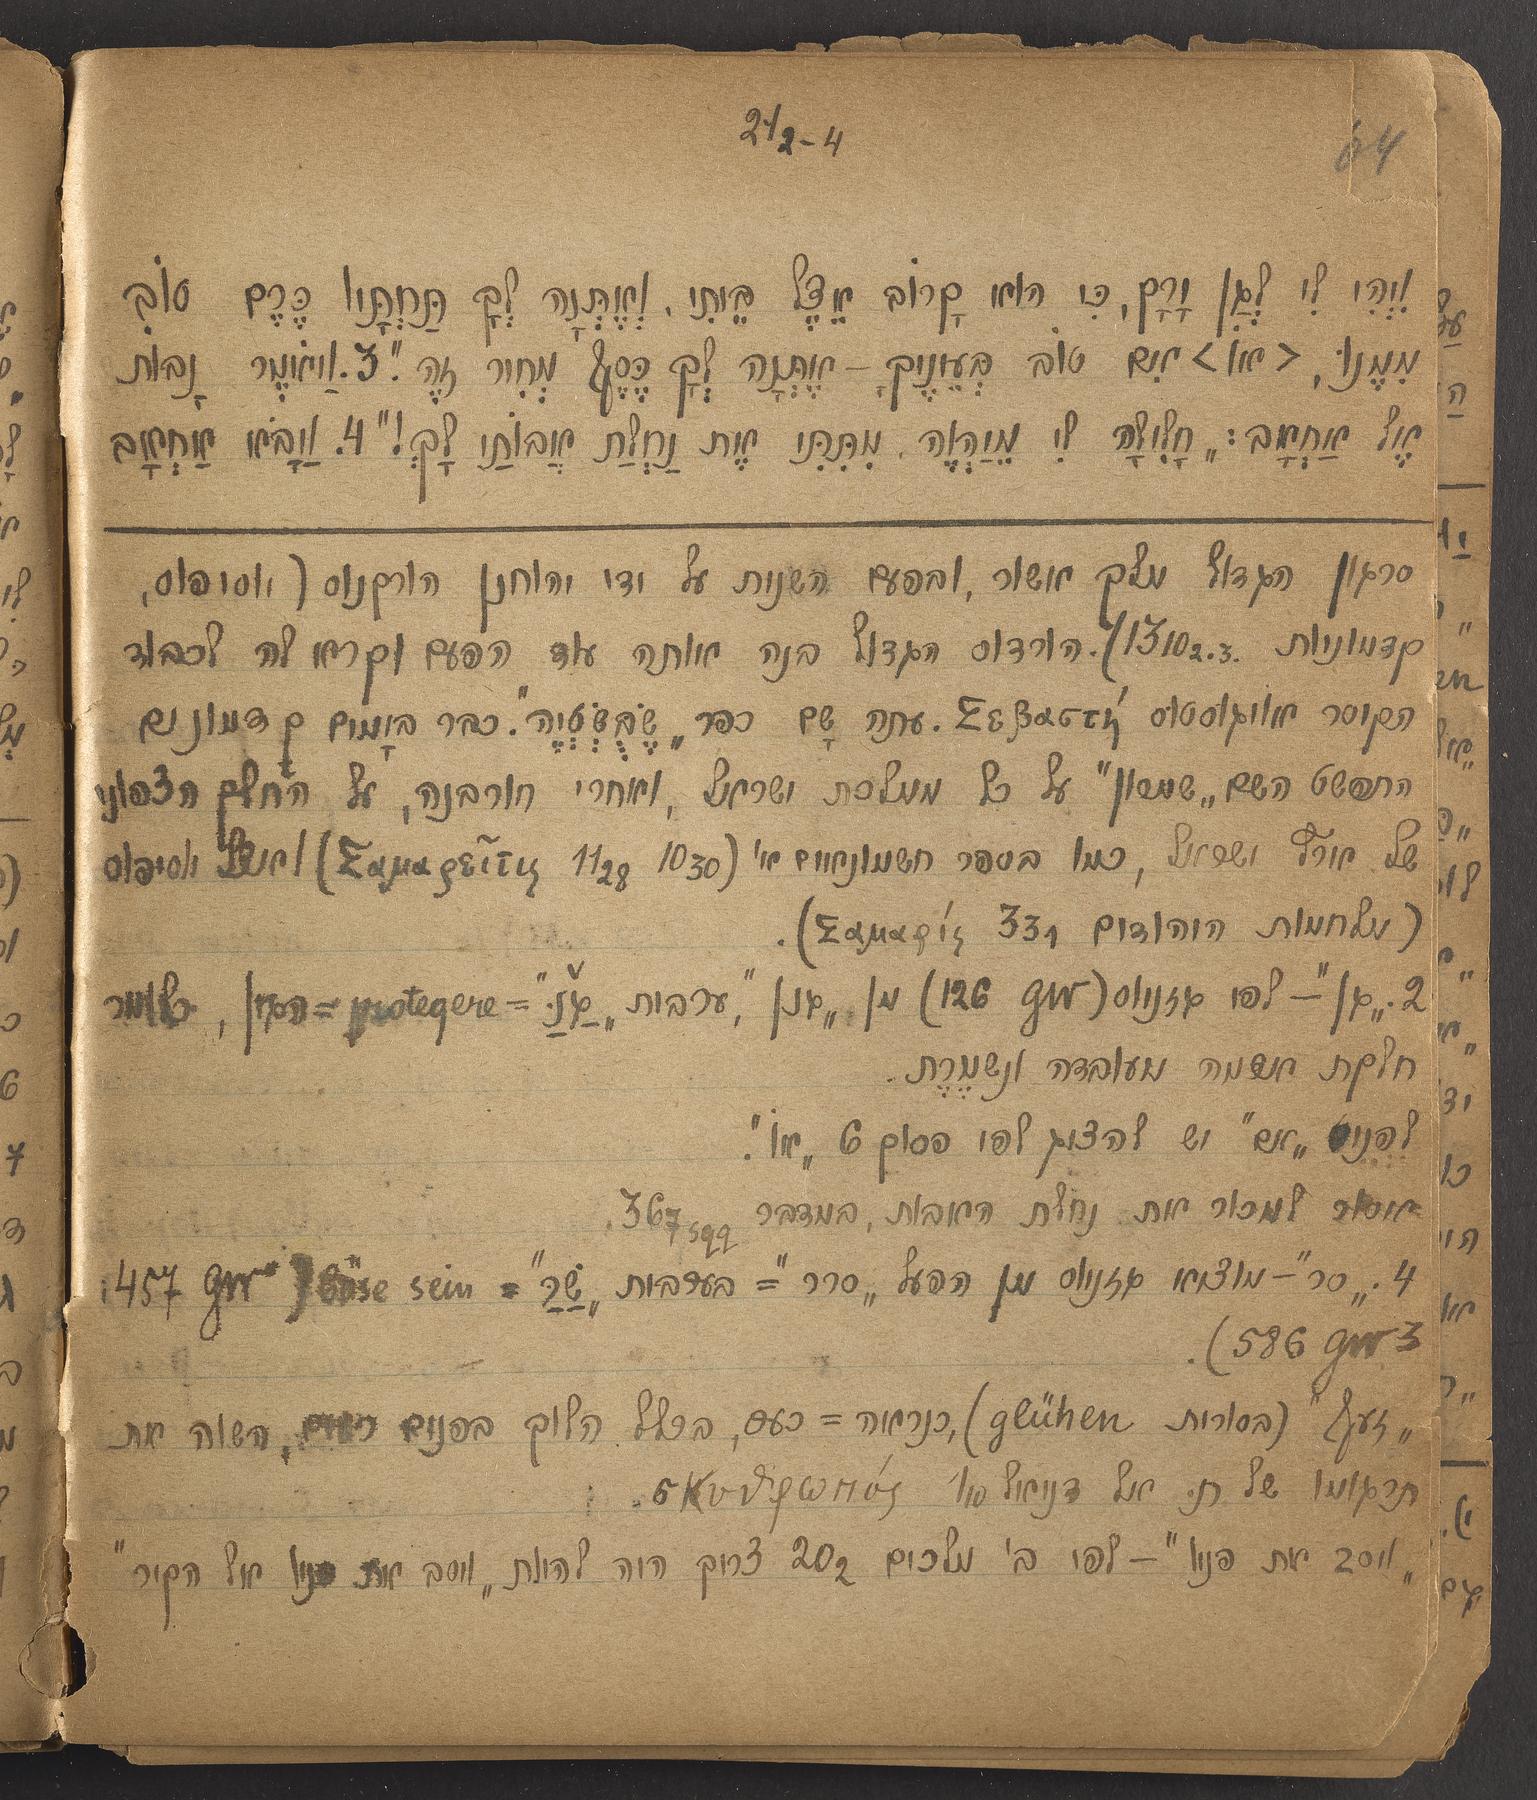 21 2-4
64
וִיְהִי לִי לְגַן יָרָק, כִּי הוּא קָרוֹב אֵצֶל בֵּיתִי, וְאֶתְּנָה לְךָ תַּחְתָּיו כֶּרֶם טוֹב
מִמֶּנּוּ, <אוֹ> אִם טוֹב בְּעֵינֶיךָ – אֶתְּנָה לְךָ כֶּסֶף מְחִיר זֶה." 3. וַיֹּאוֹמֶר נָבוֹת
אֶל אַחְאָב: „חָלִילָה לִּי מֵיַהְוֶה, מִתִּתִּי אֶת נַחְלַת אֲבוֹתַי לָךְ!" 4. וַיָּבֹא אַחְאָב
סרגון הגדול מלך אשור, ובפעם השנית על ידי יהוחנן הורקנוס (יוסיפוס,
קדמוניות 13 10 2.3.). הורדוס הגדול בנה אותה עוד הפעם וקרא לה לכבוד
הקיסר אוגוסטוס Σεβαστή. עתה שָם כפר „שֶׂבֶּסְטְיֶה". כבר בימים קדמונים
התפשט השם „שמרון" על כל ממלכת ישראל, ואחרי חורבנה, על החלק הצפוני
של ארץ ישראל, כמו בספר חשמונאים א' (10 30 11 28 Σαμαρεῖτις) ואצל יוסיפוס
(מלחמות היהודים 3 3 1 Σαμαρίς).
2. „גן" – לפי גזניוס (126 gw) מן „גנן", ערבית „גַנַּ" = protegere = הגן, כלומר
חלקת אדמה מעובדה ונשמֶרֶת.
לִפְנֵי „אם" יש להציג לפי פסוק 6 „אוֹ".
אסור למכור את נחלת האבות, במדבר 36 7 sqq.
4. „סר" – מוציא גזניוס מן הפעל „סרר" = בערבית „שַׁרַּ" = böse sein (gw 457;
gw3 586).
„זעף" (בסורית glühen), כנראה = כעס, בכלל הלוך בפנים רעים, השוה את
תרגומו של ת. אל דניאל 1 10 σκυθρωπός.
„ויסב את פניו" – לפי ב' מלכים 20 2 צריך היה להיות „ויסב את פניו אל הקיר"